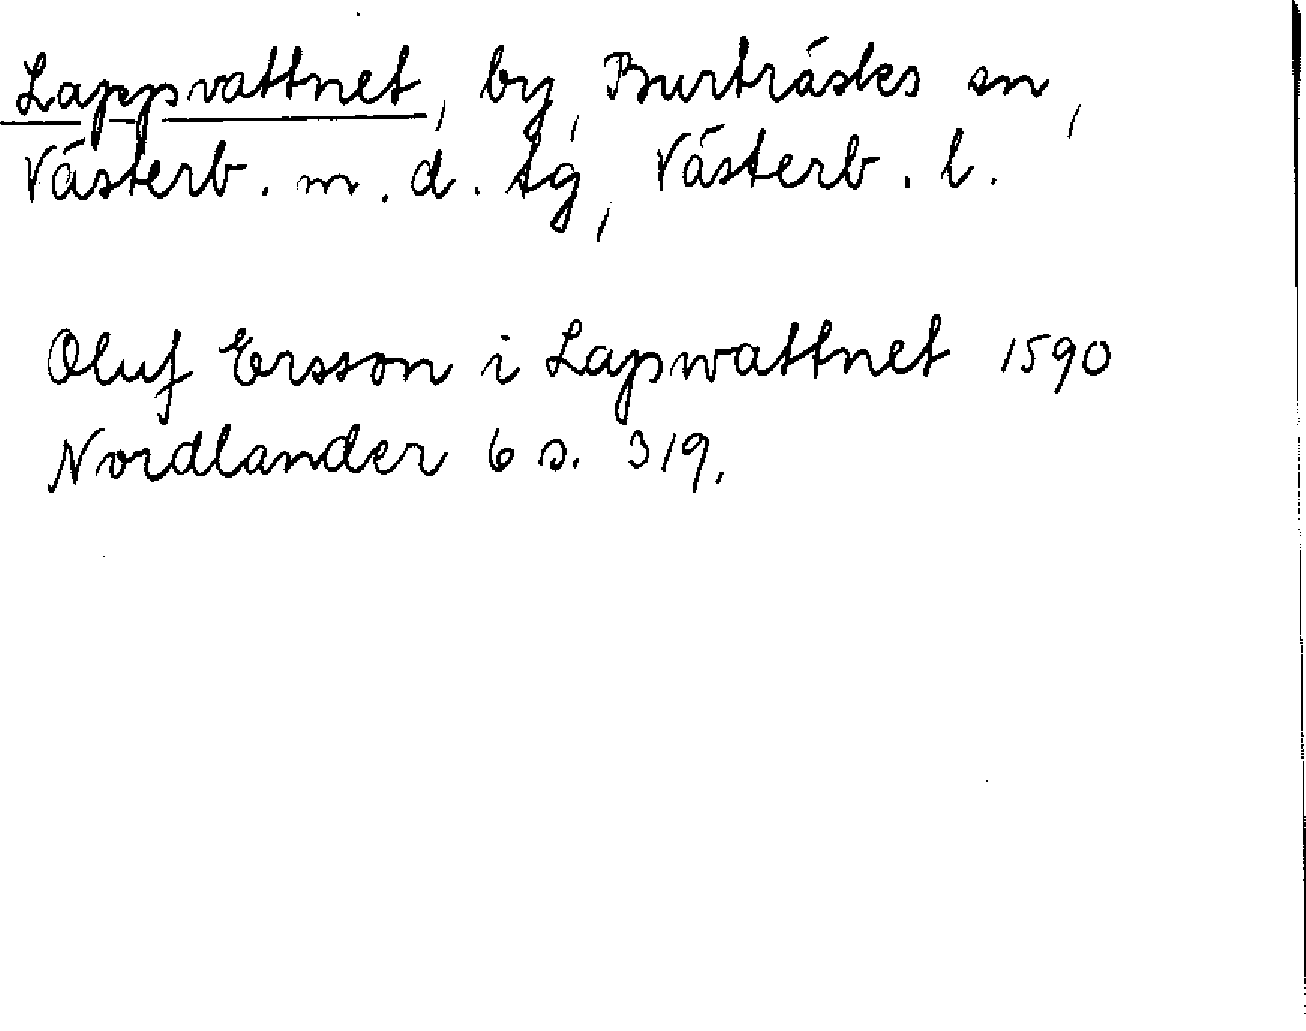 Lappvattnet, by, Burträsks sn,
Västerb. m. d. tg, Västerb. l.
Oluf Ersson i Lapwattnet 1590
Nordlander 6 s. 319.